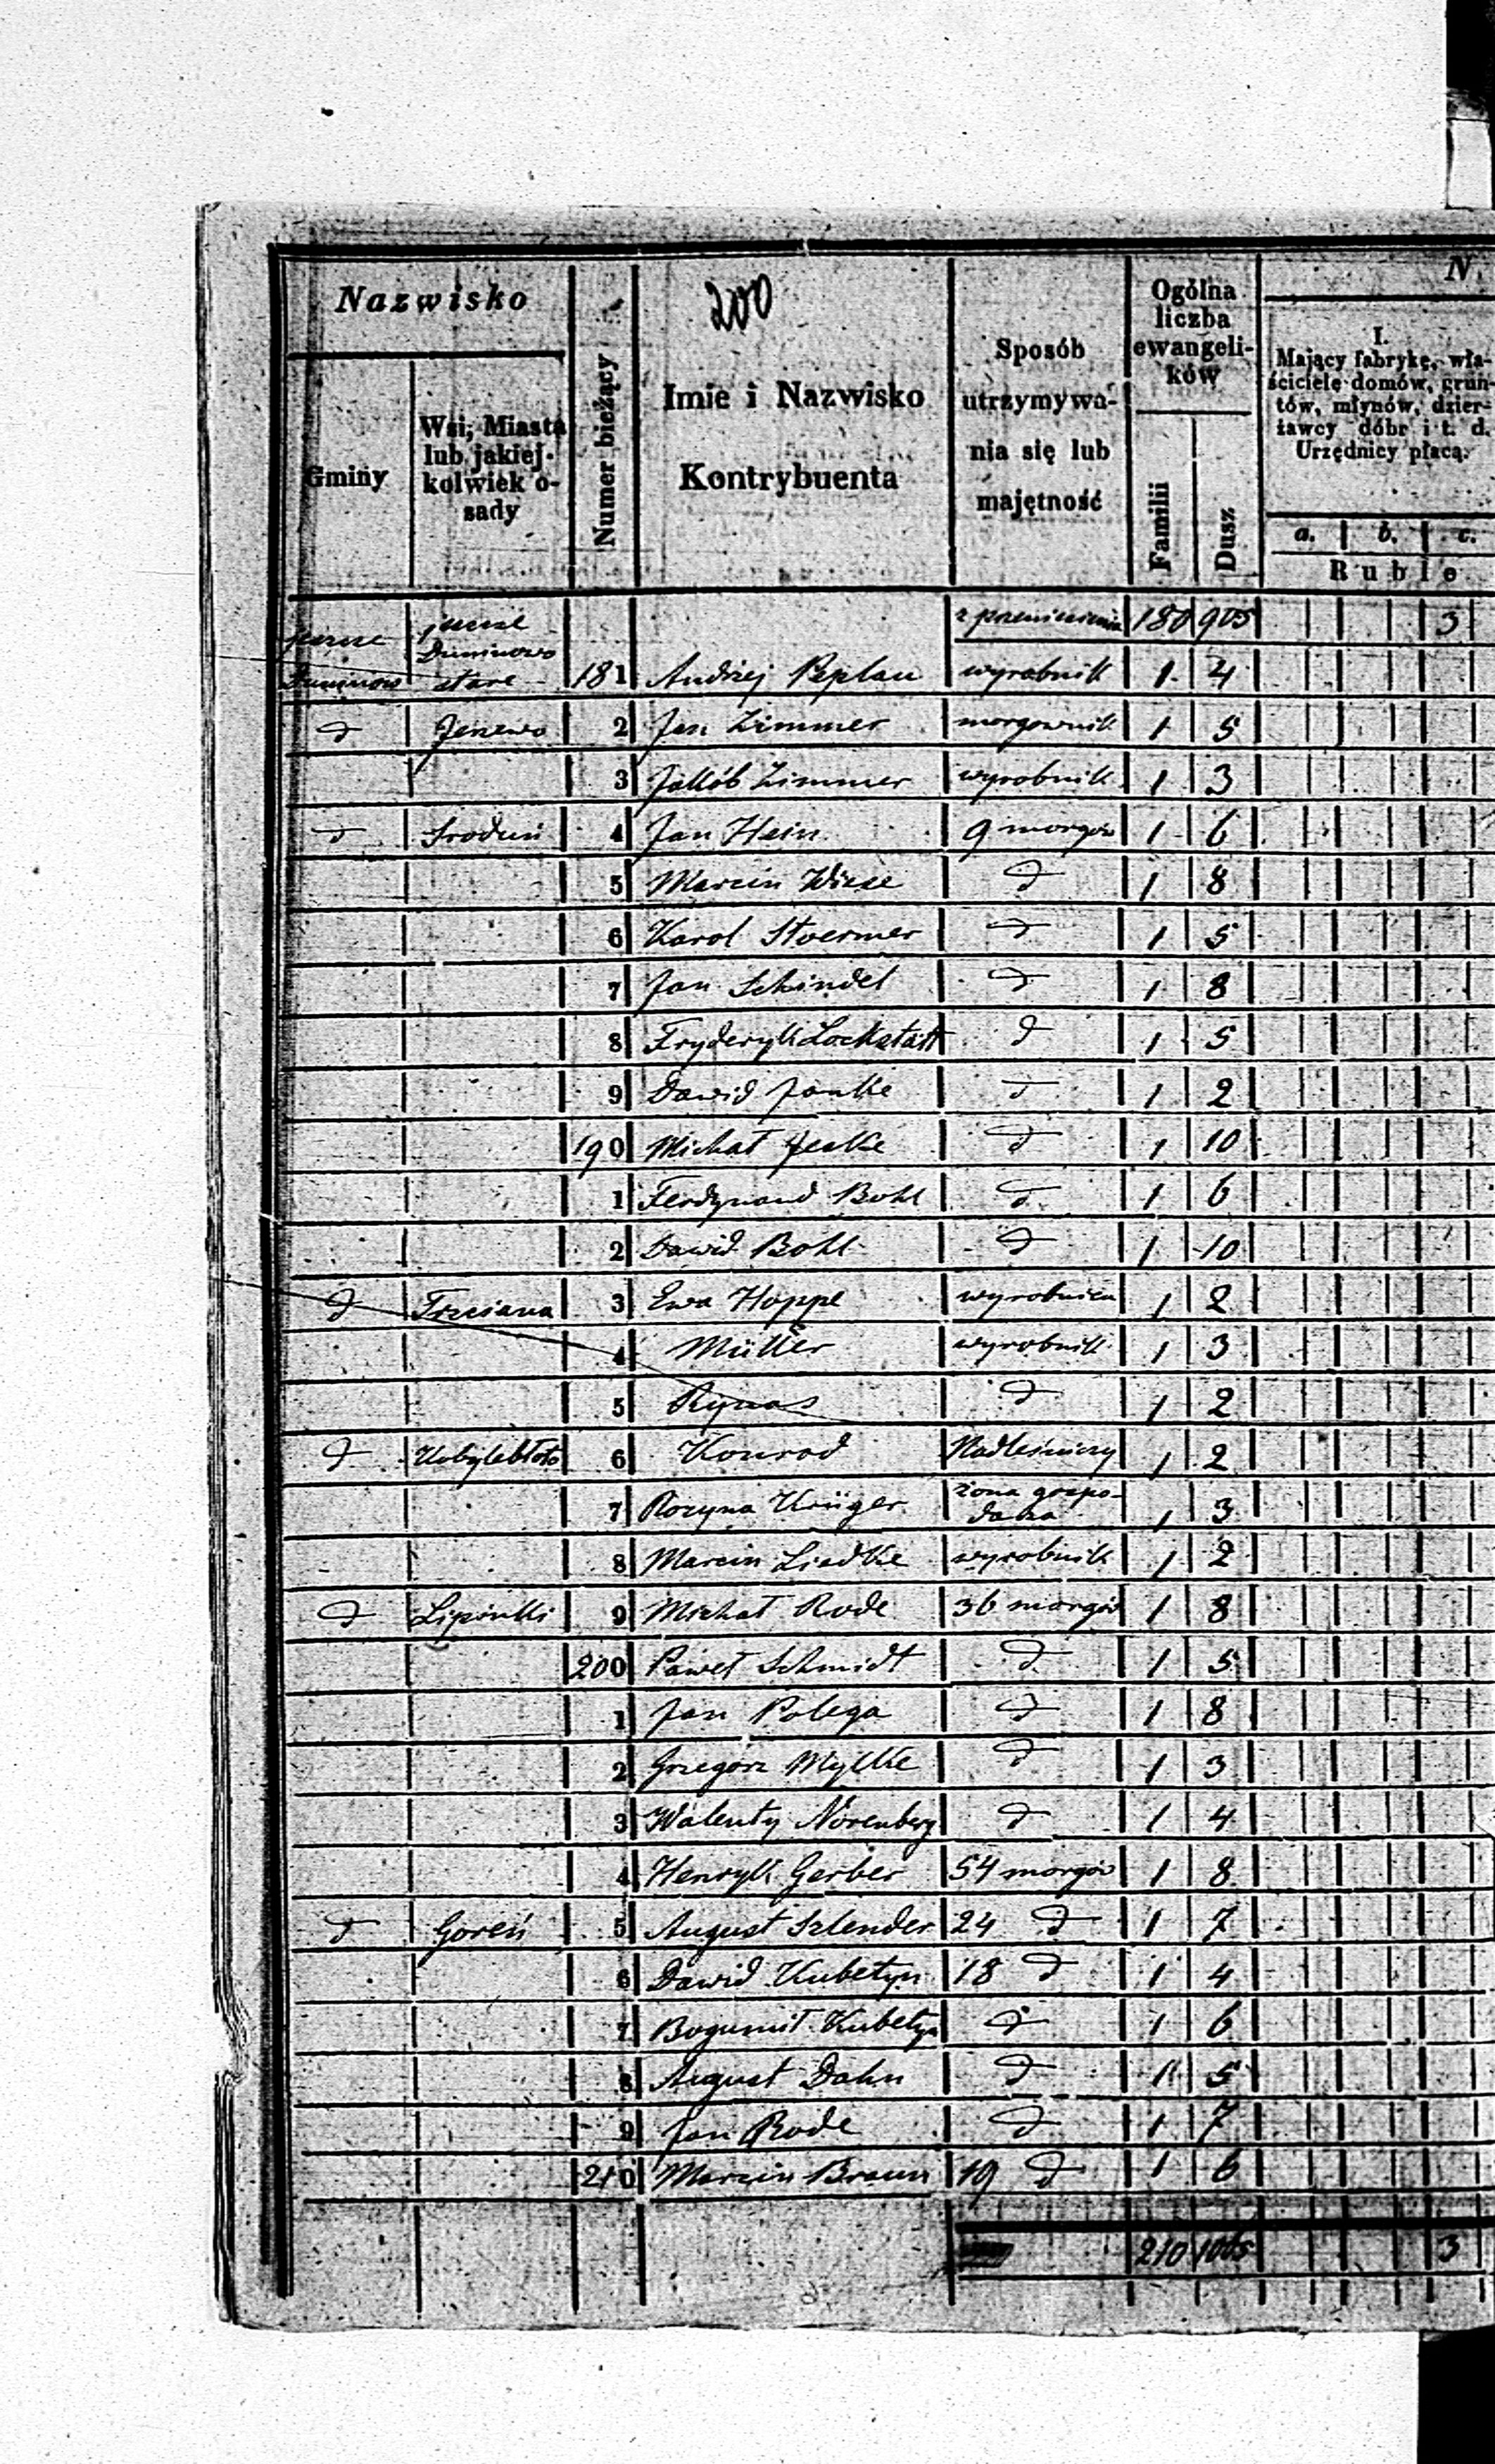 Nazwisko
Gminy
Wsi, Miasta
lub jakiej-
kolwiek o-
sady
Numer bieżący
200
Imie i Nazwisko
Kontrybuenta
Sposób
utrzymywa-
nia się lub
majętność
Ogólna
liczba
ewangeli-
ków
Familii
Dusz
N.
I.
Mający fabrykę, wła-
ściciele domów, grun-
tów, młynów, dzier-
żawcy dóbr i t. d.
Urzędnicy płacą.
a. b. c.
Ruble
z przeniesienia 180 905 3
jeszcze jeszcze
Duninowo
Duninow stare 181 Andrzej Peplau wyrobnik 1 4
d 2 Jan Zimmer morgownik 1 5
3 Jakób Zimmer wyrobnik 1 3
d Srodoń 4 Jan Hein 9 morgów 1 6
5 Marcin Wiese d 1 8
6 Karol Stoermer d 1 5
7 Jan Schindel d 1 8
8 Fryderyk Lockstädt d 1 5
9 Dawid Janke d 1 2
190 Michał Jeske d 1 10
1 Ferdynand Bohl d 1 6
2 Dawid Bohl d 1 10
d Trzciana 3 Ewa Hoppe wyrobnica 1 2
4 Müller wyrobnik 1 3
5 Rynas d 1 2
d Kobylebłoto 6 Konrad Nadleśniczy 1 2
7 Rozyna Krüger żona gospo-
darza 1 3
8 Marcin Liedke wyrobnik 1 2
d Lipinki 9 Michał Rode 36 morgów 1 8
200 Paweł Schmidt d 1 5
1 Jan Polega d 1 8
2 Grzegorz Mylke d 1 3
3 Walenty Nörenberg d 1 4
4 Henryk Gerber 54 morgów 1 8
d Goreń 5 August Szlender 24 d 1 7
6 Dawid Kubetyn 18 d 1 4
7 Bogumił Kubetyn d 1 6
8 August Dahn d 1 5
9 Jan Rode d 1 7
210 Marcin Braun 19 d 1 6
210 1065 3